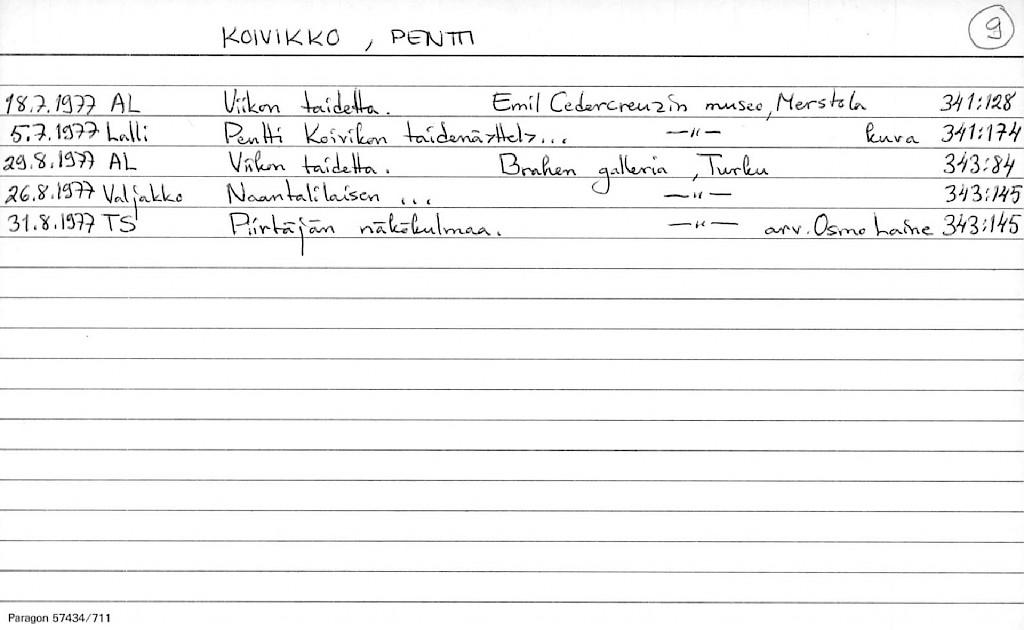 KOIVIKKO, PENTTI 9
18.7.1977 AL Viikon taidetta. Emil Cedercreuzin museo, Merstola 341:128
5.7.1977 Lalli Pentti Koivikon taidenäyttely... —"— kuva 341:174
29.8.1977 AL Viikon taidetta. Brahen galleria, Turku 343:84
26.8.1977 Valjakko Naantalilaisen ... —"— 343:145
31.8.1977 TS Piirtäjän näkökulmaa. —"— arv. Osmo Laine 343:145
Paragon 57434/711